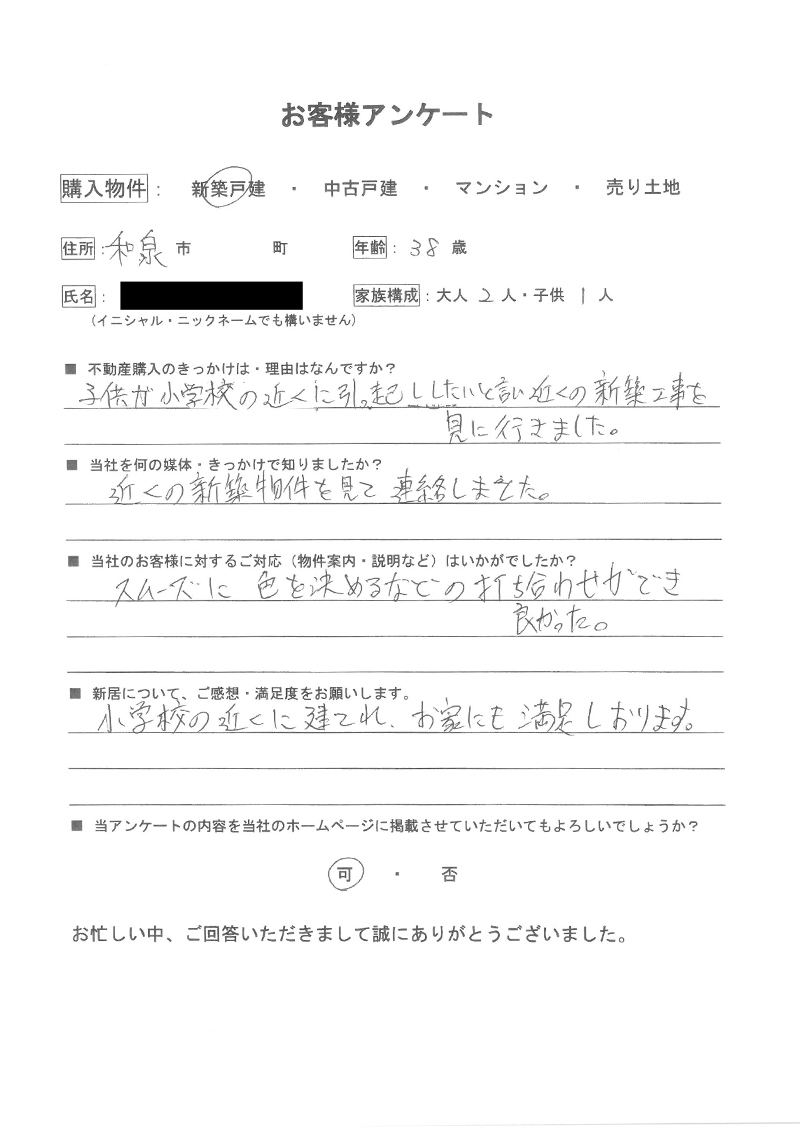 お客様アンケート
購入物件： 新築戸建 ・ 中古戸建 ・ マンション ・ 売り土地
住所：和泉市 町 年齢：38歳
氏名： 家族構成：大人 2 人・子供 1 人
（イニシャル・ニックネームでも構いません）
■ 不動産購入のきっかけは・理由はなんですか？
子供が小学校の近くに引っ起ししたいと言い近くの新築工事を
見に行きました。
■ 当社を何の媒体・きっかけで知りましたか？
近くの新築物件を見て連絡しました。
■ 当社のお客様に対するご対応（物件案内・説明など）はいかがでしたか？
スムーズに 色を決めるなどの打ち合わせができ
良かった。
■ 新居について、ご感想・満足度をお願いします。
小学校の近くに建てれ、お家にも満足しおります。
■ 当アンケートの内容を当社のホームページに掲載させていただいてもよろしいでしょうか？
可 ・ 否
お忙しい中、ご回答いただきまして誠にありがとうございました。